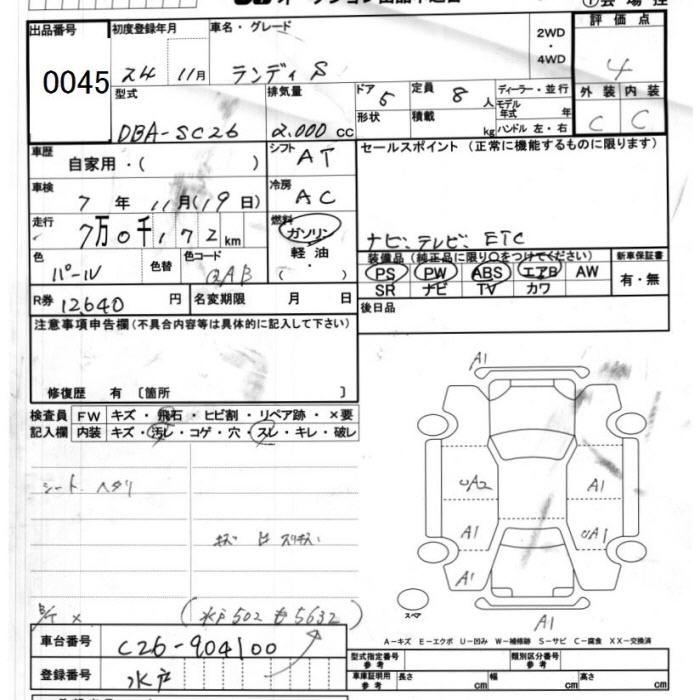 出品番号
0045
初度登録年月
24 11月
車名・グレード
ランディ S
2WD
・
4WD
評価点
4
外装 内装
C C
型式
DBA-SC26
排気量
2.000 cc
ドア 5
形状
定員 8 人
積載 kg
ディーラー・並行
モデル年式 年
ハンドル 左・右
車歴
自家用・( )
シフト AT
セールスポイント (正常に機能するものに限ります)
車検
7 年 11月(19日)
冷房 AC
走行
7万0千172km
燃料
ガソリン
軽油
・
( )
ナビ、テレビ、ETC
色
パール
色替
色コード
QAB
装備品(純正品に限り〇をつけてください)
PS PW ABS エアB AW
SR ナビ TV カワ
新車保証書
有・無
R券 12,640 円
名変期限 月 日
後日品
注意事項申告欄(不具合内容等は具体的に記入して下さい)
修復歴 有 〔箇所 〕
検査員
記入欄
FW キズ・飛石・ヒビ割・リペア跡・×要
内装 キズ・汚レ・コゲ・穴・スレ・キレ・破レ
シート ヘタリ
(水戸502も5632)
A1
UA2
A1
A1
A1
UA1
A1
スペア
A-キズ E-エクボ U-凹み W-補修跡 S-サビ C-腐食 XX-交換済
車台番号
C26-904100
登録番号
水戸
型式指定番号
参考
類別区分番号
参考
車庫証明用
参考
長さ cm 幅 cm 高さ cm